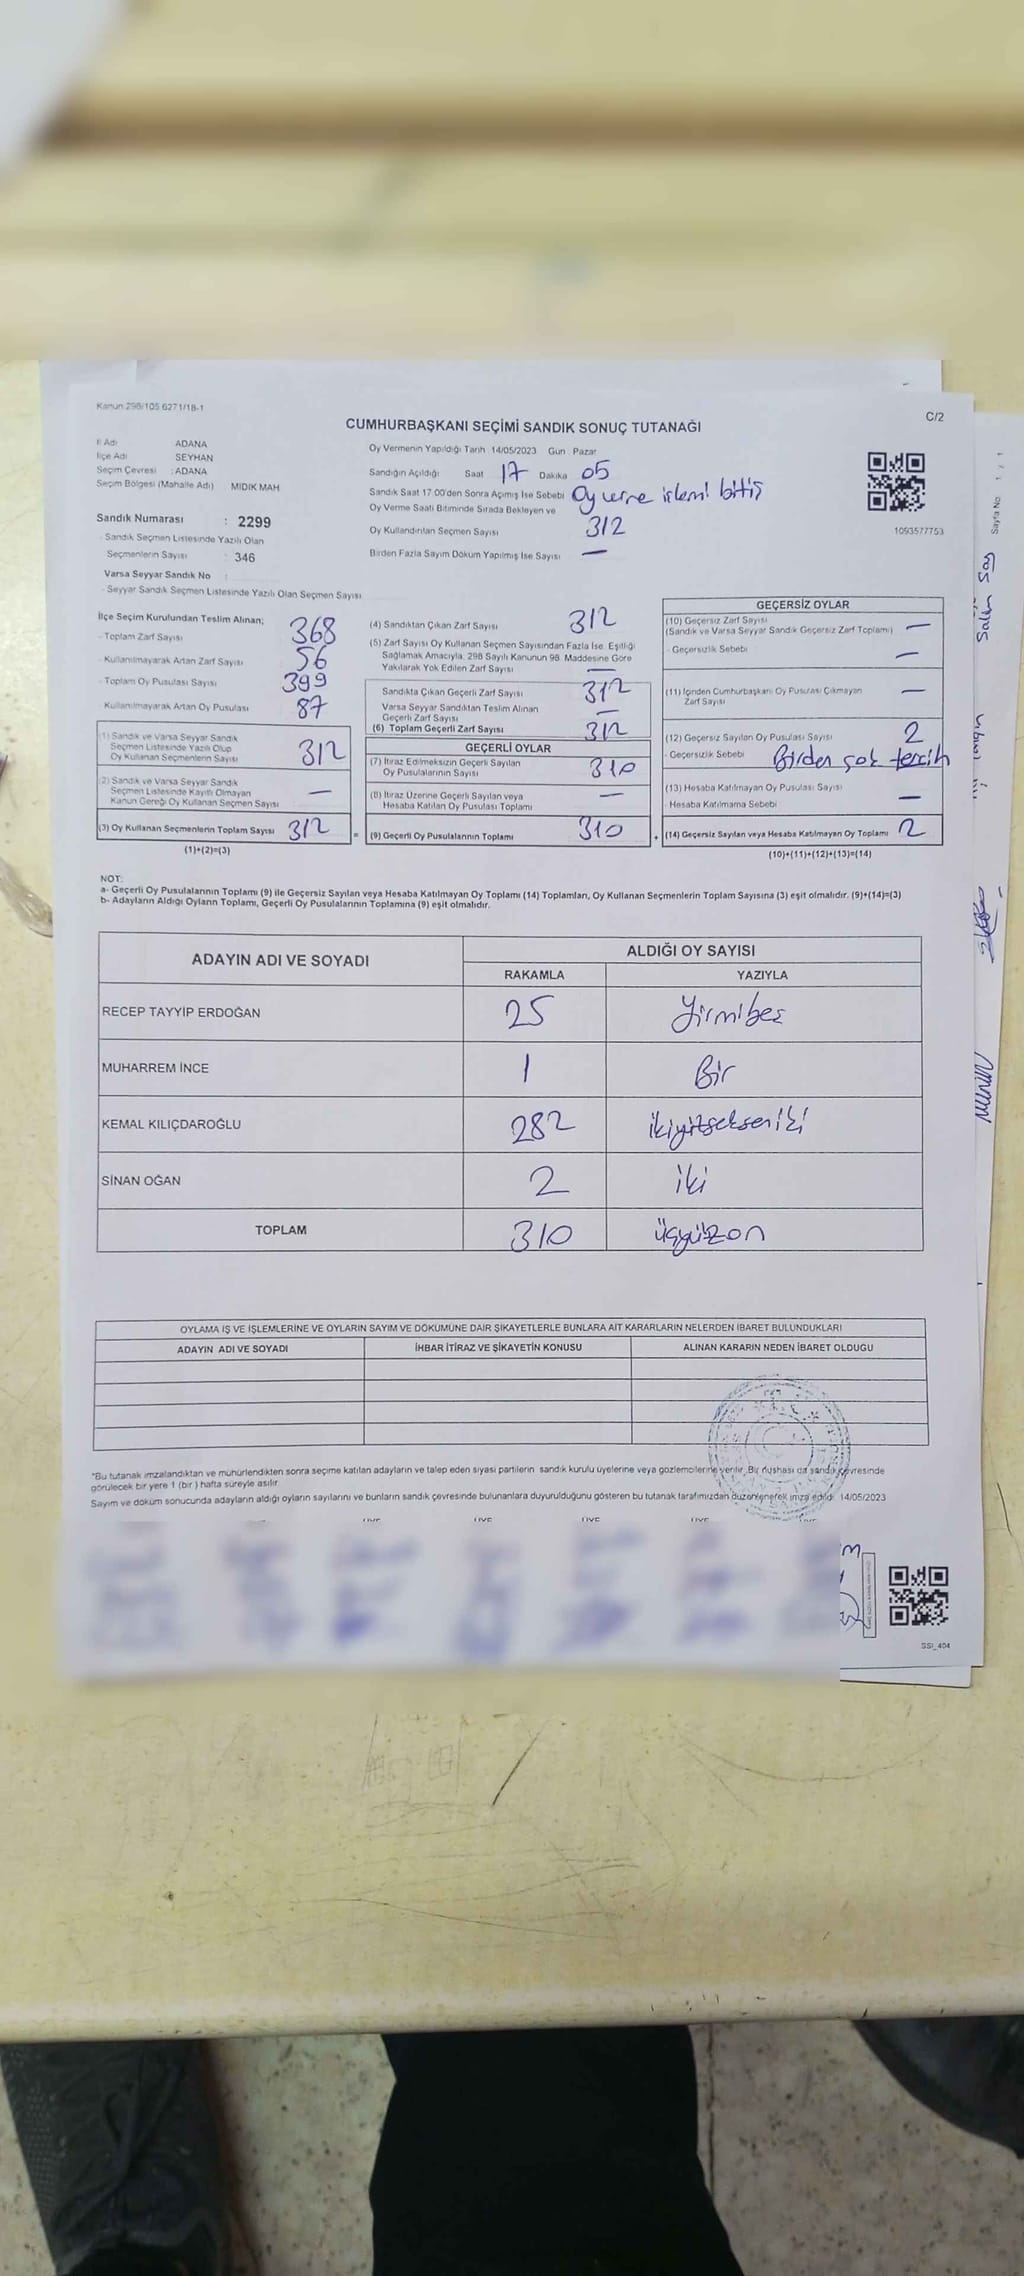 Kanun 298/105 6271/18-1
C/2
CUMHURBAŞKANI SEÇİMİ SANDIK SONUÇ TUTANAĞI
İl Adı ADANA
İlçe Adı SEYHAN
Seçim Çevresi : ADANA
Seçim Bölgesi (Mahalle Adı) MIDIK MAH
Sandık Numarası : 2299
- Sandık Seçmen Listesinde Yazılı Olan
Seçmenlerin Sayısı : 346
Varsa Seyyar Sandık No :
- Seyyar Sandık Seçmen Listesinde Yazılı Olan Seçmen Sayısı
Oy Vermenin Yapıldığı Tarih 14/05/2023 Gün : Pazar
Sandığın Açıldığı Saat 17 Dakika 05
Sandık Saat 17.00'den Sonra Açımış İse Sebebi Oy verme işlemi bitiş
Oy Verme Saati Bitiminde Sırada Bekleyen ve
Oy Kullandırılan Seçmen Sayısı 312
Birden Fazla Sayım Döküm Yapılmış İse Sayısı —
1093577753
Sayfa No 1 / 1
İlçe Seçim Kurulundan Teslim Alınan;
- Toplam Zarf Sayısı 368
- Kullanılmayarak Artan Zarf Sayısı 56
- Toplam Oy Pusulası Sayısı 399
- Kullanılmayarak Artan Oy Pusulası 87
(1) Sandık ve Varsa Seyyar Sandık
Seçmen Listesinde Yazılı Olup
Oy Kullanan Seçmenlerin Sayısı 312
(2) Sandık ve Varsa Seyyar Sandık
Seçmen Listesinde Kayıtlı Olmayan
Kanun Gereği Oy Kullanan Seçmen Sayısı —
(3) Oy Kullanan Seçmenlerin Toplam Sayısı 312
(1)+(2)=(3)
(4) Sandıktan Çıkan Zarf Sayısı 312
(5) Zarf Sayısı Oy Kullanan Seçmen Sayısından Fazla İse. Eşitliği
Sağlamak Amacıyla, 298 Sayılı Kanunun 98. Maddesine Göre
Yakılarak Yok Edilen Zarf Sayısı —
Sandıkta Çıkan Geçerli Zarf Sayısı 312
Varsa Seyyar Sandıktan Teslim Alınan
Geçerli Zarf Sayısı —
(6) Toplam Geçerli Zarf Sayısı 312
GEÇERLİ OYLAR
(7) İtiraz Edilmeksizin Geçerli Sayılan
Oy Pusulalarının Sayısı 310
(8) İtiraz Üzerine Geçerli Sayılan veya
Hesaba Katılan Oy Pusulası Toplamı —
(9) Geçerli Oy Pusulalarının Toplamı 310
GEÇERSİZ OYLAR
(10) Geçersiz Zarf Sayısı
(Sandık ve Varsa Seyyar Sandık Geçersiz Zarf Toplamı) —
- Geçersizlik Sebebi —
(11) İçinden Cumhurbaşkanı Oy Pusulası Çıkmayan
Zarf Sayısı —
(12) Geçersiz Sayılan Oy Pusulası Sayısı 2
- Geçersizlik Sebebi Birden çok tercih
(13) Hesaba Katılmayan Oy Pusulası Sayısı
- Hesaba Katılmama Sebebi —
(14) Geçersiz Sayılan veya Hesaba Katılmayan Oy Toplamı 2
(10)+(11)+(12)+(13)=(14)
NOT:
a- Geçerli Oy Pusulalarının Toplamı (9) ile Geçersiz Sayılan veya Hesaba Katılmayan Oy Toplamı (14) Toplamları, Oy Kullanan Seçmenlerin Toplam Sayısına (3) eşit olmalıdır. (9)+(14)=(3)
b- Adayların Aldığı Oyların Toplamı, Geçerli Oy Pusulalarının Toplamına (9) eşit olmalıdır.
ADAYIN ADI VE SOYADI
ALDIĞI OY SAYISI
RAKAMLA YAZIYLA
RECEP TAYYİP ERDOĞAN 25 Yirmibeş
MUHARREM İNCE 1 Bir
KEMAL KILIÇDAROĞLU 282 ikiyüzsekseniki
SİNAN OĞAN 2 iki
TOPLAM 310 üçyüzon
OYLAMA İŞ VE İŞLEMLERİNE VE OYLARIN SAYIM VE DÖKÜMÜNE DAİR ŞİKAYETLERLE BUNLARA AİT KARARLARIN NELERDEN İBARET BULUNDUKLARI
ADAYIN ADI VE SOYADI İHBAR İTİRAZ VE ŞİKAYETİN KONUSU ALINAN KARARIN NEDEN İBARET OLDUĞU
"Bu tutanak imzalandıktan ve mühürlendikten sonra seçime katılan adayların ve talep eden siyasi partilerin sandık kurulu üyelerine veya gözlemcilerine verilir. Bir nüshası da sandık çevresinde
görülecek bir yere 1 (bir) hafta süreyle asılır
Sayım ve döküm sonucunda adayların aldığı oyların sayılarını ve bunların sandık çevresinde bulunanlara duyurulduğunu gösteren bu tutanak tarafımızdan düzenlenerek imza edildi. 14/05/2023
SSI_404